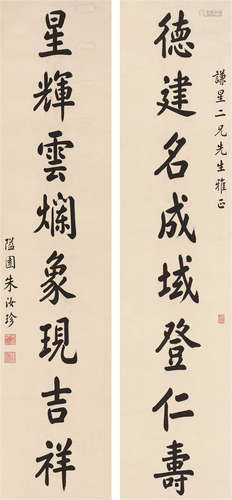 謙星二兄先生雅正
德建名成域登仁壽
星輝雲爛象現吉祥
隘園朱汝珍